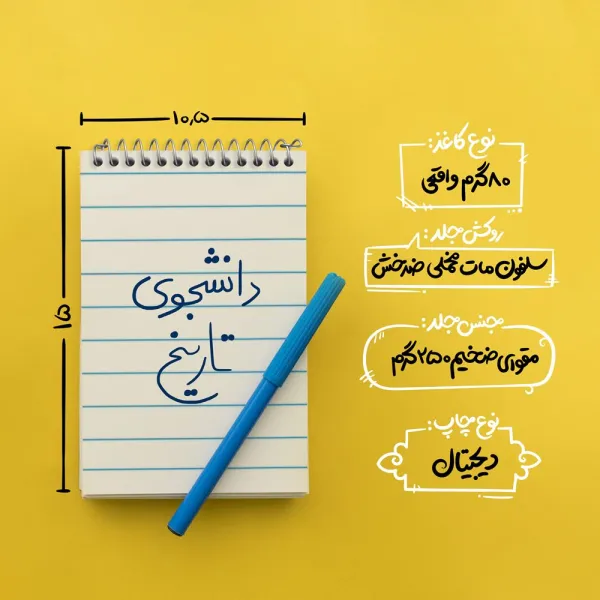 ۱۰,۵
۱۵
دانشجوی
تاریخ
نوع کاغذ:
۸۰گرم واقعی
روکش جلد:
سلفون مات مخملی ضدخش
جنس جلد:
مقوای ضخیم ۲۵۰گرم
نوع چاپ:
دیجیتال